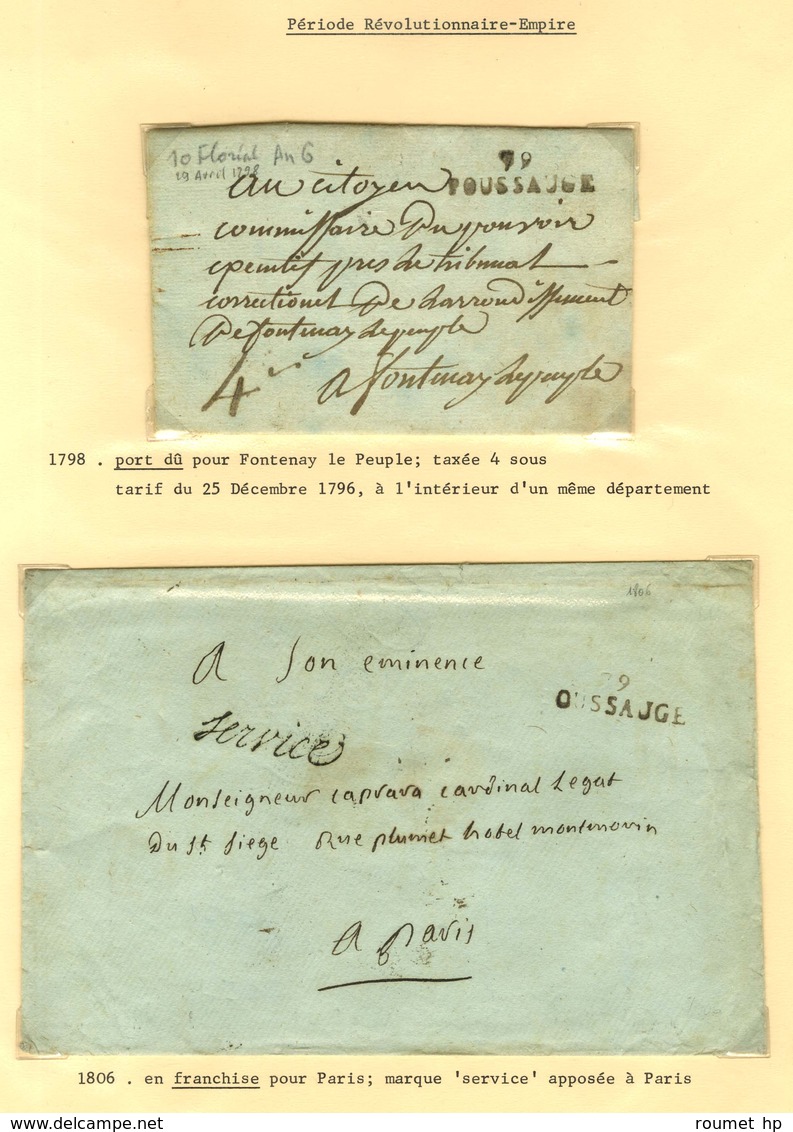 Période Révolutionnaire-Empire
10 Floréal An 6
29 Avril 1798
79
POUSSAUGE
au citoyen
commissaire du pouvoir
executif pres le tribunal
correctionel de larrondissement
de fontenay lepeuple
4 a fontenay lepeuple
1798 . port dû pour Fontenay le Peuple; taxée 4 sous
tarif du 25 Décembre 1796, à l'intérieur d'un même département
1806
A Son eminence
79
OUSSAUGE
Service
Monseigneur caprara cardinal Legat
Du St Siege Rue plumet hotel montmorin
A paris
1806 . en franchise pour Paris; marque 'service' apposée à Paris
roumet hp